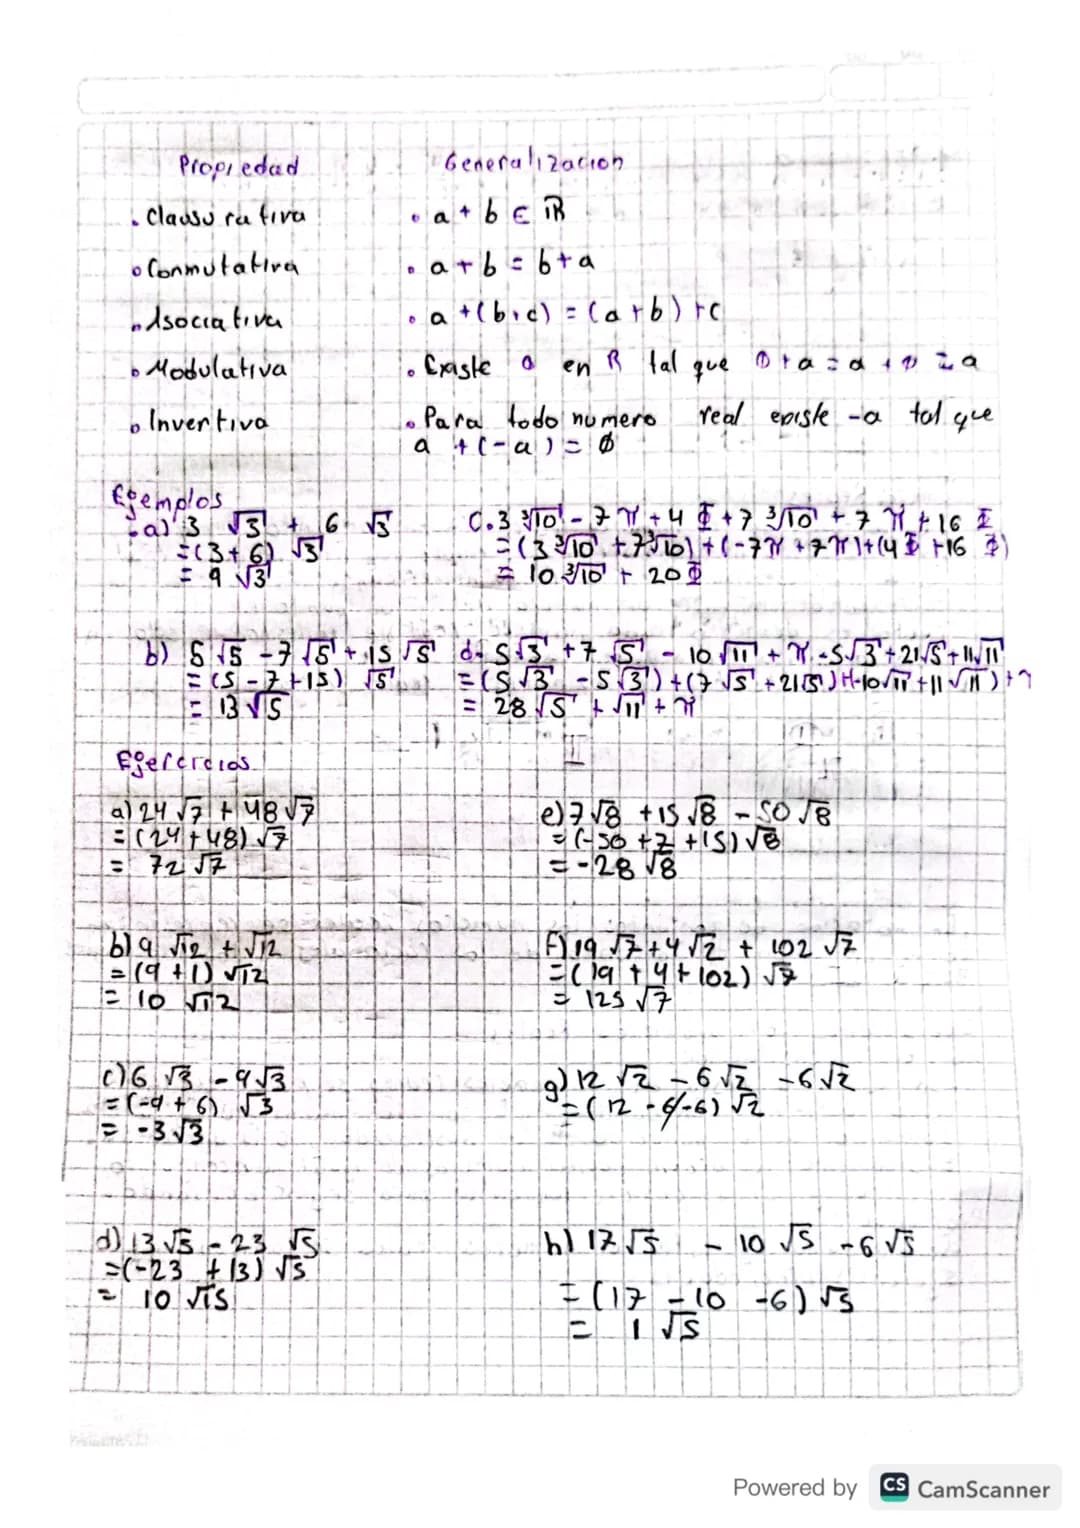 Propiedad Generalizacion
. Clausurativa . a + b ∈ ℝ
. Conmutativa . a + b = b + a
. Asociativa . a + (b + c) = (a + b) + c
. Modulativa . Existe 0 en R tal que 0 + a = a + 0 = a
. Invertiva . Para todo numero real existe -a tal que
a + (-a) = Ø
Ejemplos
. a) 3 √3 + 6 √3
= (3+6) √3
= 9 √3
c. 3 ∛10 - 7 π + 4 Φ + 7 ∛10 + 7 π + 16 Φ
= (3 ∛10 + 7 ∛10) + (-7π + 7π) + (4 Φ + 16 Φ)
= 10 ∛10 + 20 Φ
b) 5 √5 - 7 √5 + 15 √5
= (5 - 7 + 15) √5
= 13 √5
d. 5 √3 + 7 √5 - 10 √11 + π - 5 √3 + 21 √5 + 11 √11
= (5 √3 - 5 √3) + (7 √5 + 21 √5) + (-10 √11 + 11 √11) + π
= 28 √5 + √11 + π
Ejercicios
a) 24 √7 + 48 √7
= (24 + 48) √7
= 72 √7
e) 7 √8 + 15 √8 - 50 √8
= (-50 + 7 + 15) √8
= -28 √8
b) 9 √12 + √12
= (9 + 1) √12
= 10 √12
f) 19 √7 + 4 √2 + 102 √7
= (19 + 4 + 102) √7
= 125 √7
c) 6 √3 - 9 √3
= (-9 + 6) √3
= -3 √3
g) 12 √2 - 6 √2 - 6 √2
= (12 - 6 - 6) √2
d) 13 √5 - 23 √5
= (-23 + 13) √5
= 10 √15
h) 17 √5 - 10 √5 - 6 √5
= (17 - 10 - 6) √5
= 1 √5
Powered by CS CamScanner